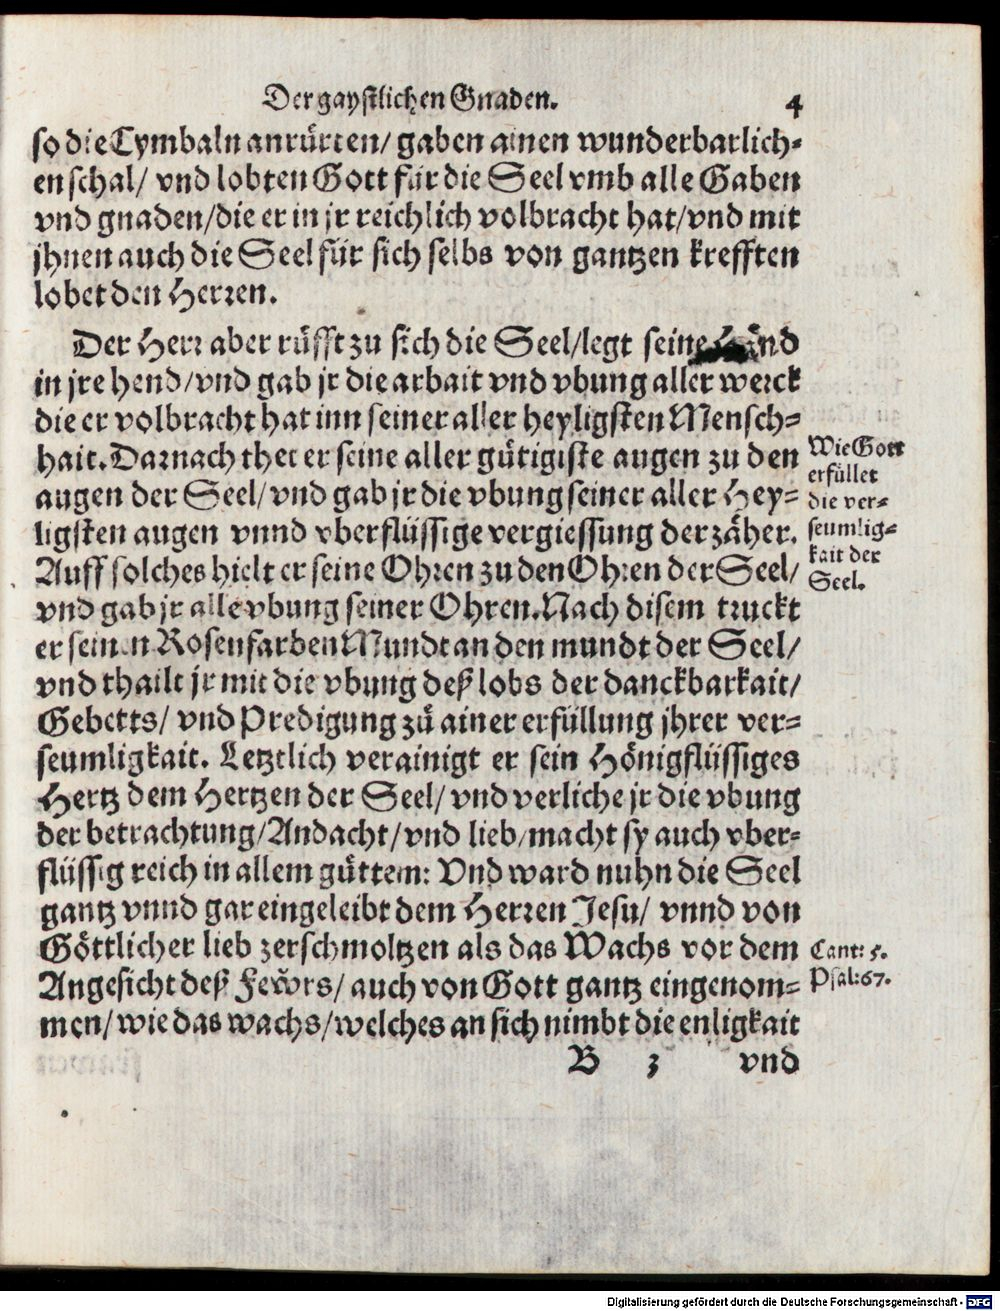 Der gaystlichen Gnaden. 4
so die Cymbaln anrürten/ gaben ainen wunderbarlich-
en schal/ vnd lobten Gott für die Seel vmb alle Gaben
vnd gnaden/die er in jr reichlich volbracht hat/vnd mit
jhnen auch die Seel für sich selbs von gantzen krefften
lobet den Herren.
Der Herr aber rüfft zu sich die Seel/legt seine Händ
in jre hend/vnd gab jr die arbait vnd vbung aller werck
die er volbracht hat inn seiner aller heyligsten Mensch-
hait. Darnach thet er seine aller gütigiste augen zu den
augen der Seel/ vnd gab jr die vbung seiner aller Hey-
ligsten augen vnnd vberflüssige vergiessung der zäher.
Auff solches hielt er seine Ohren zu den Ohren der Seel/
vnd gab jr alle vbung seiner Ohren. Nach disem truckt
er seinen Rosenfarben Mundt an den mundt der Seel/
vnd thailt jr mit die vbung deß lobs der danckbarkait/
Gebetts/ vnd Predigung zů ainer erfüllung jhrer ver-
seumligkait. Letztlich verainigt er sein Hönigflüssiges
Hertz dem Hertzen der Seel/ vnd verliche jr die vbung
der betrachtung/Andacht/vnd lieb/macht sy auch vber-
flüssig reich in allem güttem: Vnd ward nuhn die Seel
gantz vnnd gar eingeleibt dem Herren Jesu/ vnnd von
Göttlicher lieb zerschmoltzen als das Wachs vor dem
Angesicht deß Fewrs/ auch von Gott gantz eingenom-
men/wie das wachs/welches an sich nimbt die enligkait
B 3 vnd
Wie Gott
erfüllet
die ver-
seumlig-
kait der
Seel.
Cant: 5.
Psal:67.
Digitalisierung gefördert durch die Deutsche Forschungsgemeinschaft - DFG